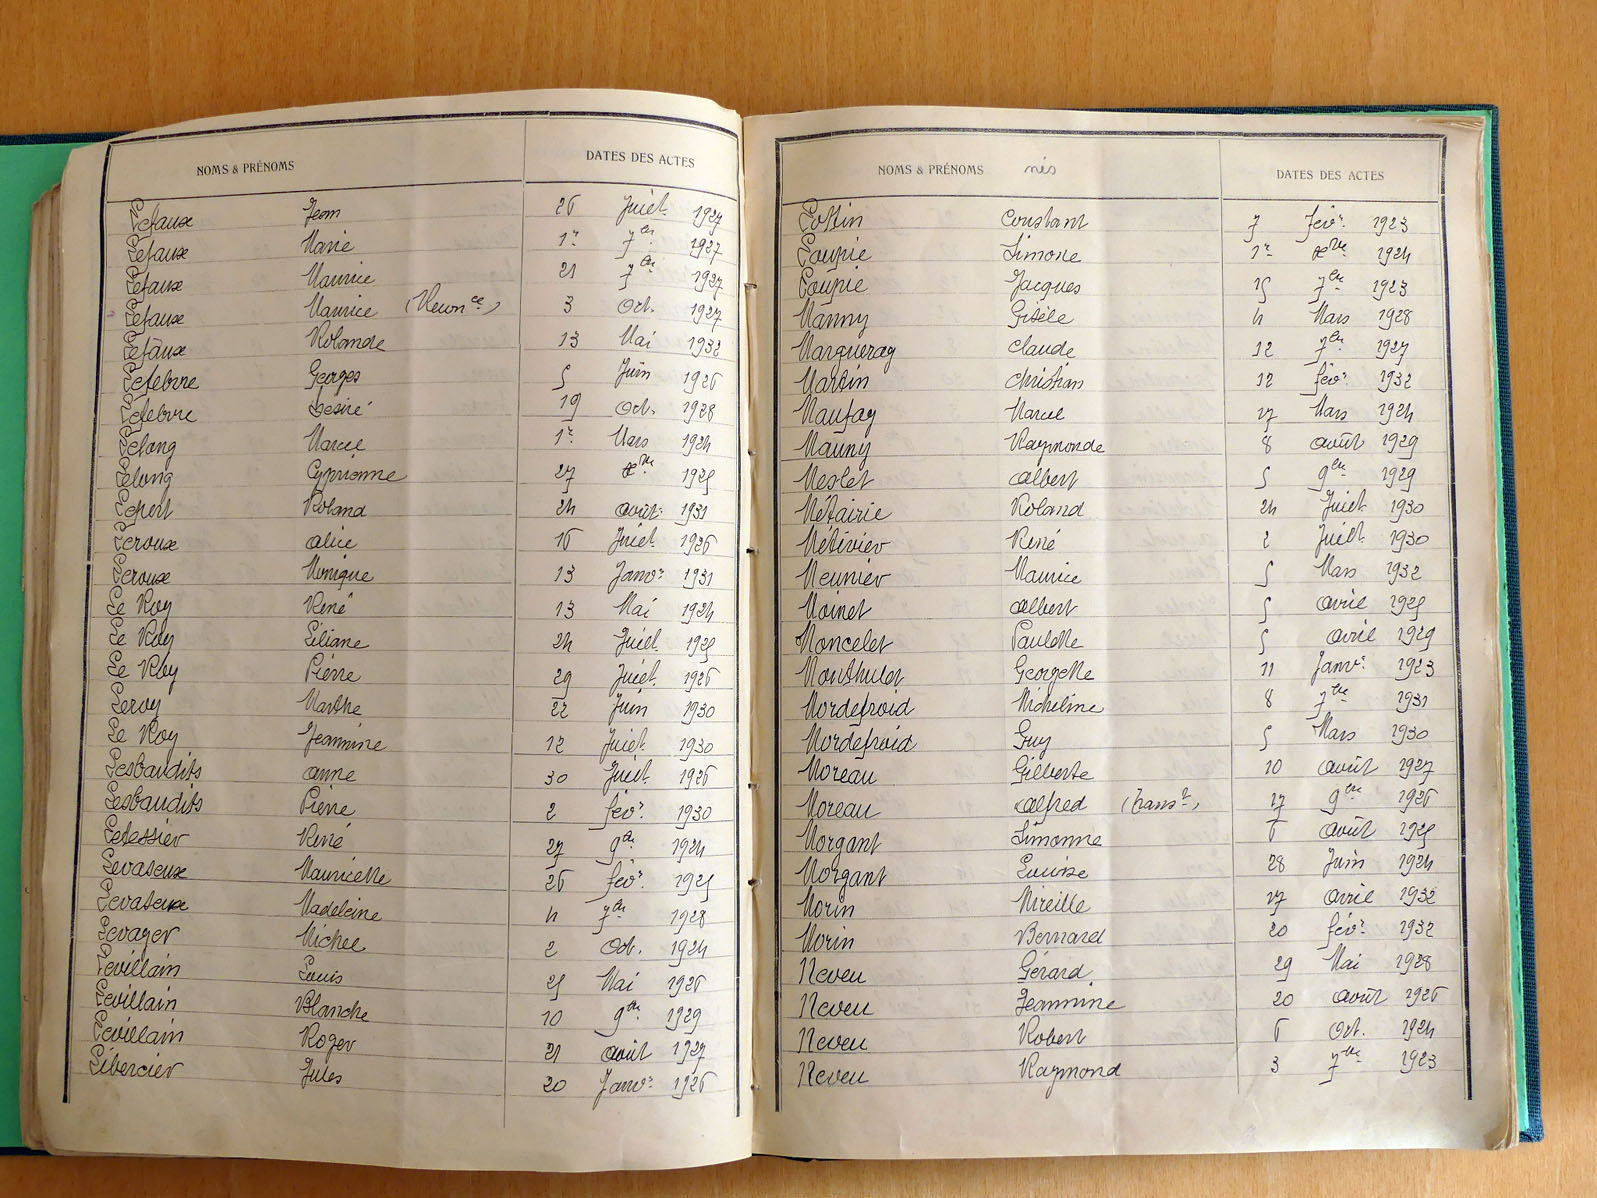 NOMS & PRÉNOMS DATES DES ACTES
Lefaux Jean 26 Juiet. 1927
Lefaux Marie 1er 7bre 1927
Lefaux Maurice 21 7bre 1927
Lefaux Maurice (Reconce) 3 Oct. 1927
Lefaux Rolande 13 Mai 1932
Lefebvre Georges 5 Juin 1926
Lefebvre Désiré 19 Oct. 1928
Lelong Marcel 1er Mars 1924
Lelong Cyprienne 27 Xbre 1925
Lepert Roland 24 août 1931
Leroux alice 16 Juiet. 1926
Leroux Monique 13 Janvr 1931
Le Roy René 13 Mai 1924
Le Roy Liliane 24 Juiet. 1925
Le Roy Pierre 29 Juiet. 1926
Leroy Marthe 22 Juin 1930
Le Roy Jeannine 12 Juiet. 1930
Lesbaudits anne 30 Juiet. 1926
Lesbaudits Pierre 2 févr 1930
Letessier René 27 9bre 1924
Levaseux Mauricette 26 févr. 1925
Levaseux Madeleine 4 7bre 1928
Levazer Michel 2 Oct. 1924
Levillain Louis 25 Mai 1926
Levillain Blanche 10 9bre 1929
Levillain Roger 21 août 1927
Libercier Jules 20 Janvr 1926
NOMS & PRÉNOMS DATES DES ACTES
Lottin Constant 7 févr 1923
Loupie Simone 1er Xbre 1924
Loupie Jacques 15 7bre 1923
Manny Gisèle 4 Mars 1928
Margueray Claude 12 7bre 1927
Martin Christian 12 févr 1932
Maufay Marcel 27 Mars 1924
Mauny Raymonde 8 août 1929
Meslet albert 5 9bre 1929
Métairie Roland 24 Juiet. 1930
Métivier René 2 Juiet. 1930
Meunier Maurice 5 Mars 1932
Moinet albert 5 avril 1925
Moncelet Paulette 5 avril 1929
Monthulet Georgette 11 Janvr 1923
Mordefroid Micheline 8 7bre 1931
Mordefroid Guy 5 Mars 1930
Moreau Gilberte 10 août 1927
Moreau alfred (transon) 27 9bre 1926
Morgant Simonne 6 août 1925
Morgant Louise 28 Juin 1924
Morin Mireille 27 avril 1932
Morin Bernard 20 févr 1932
Neveu Gérard 29 Mai 1928
Neveu Jeannine 20 août 1926
Neveu Robert 6 Oct. 1924
Neveu Raymond 3 7bre 1923